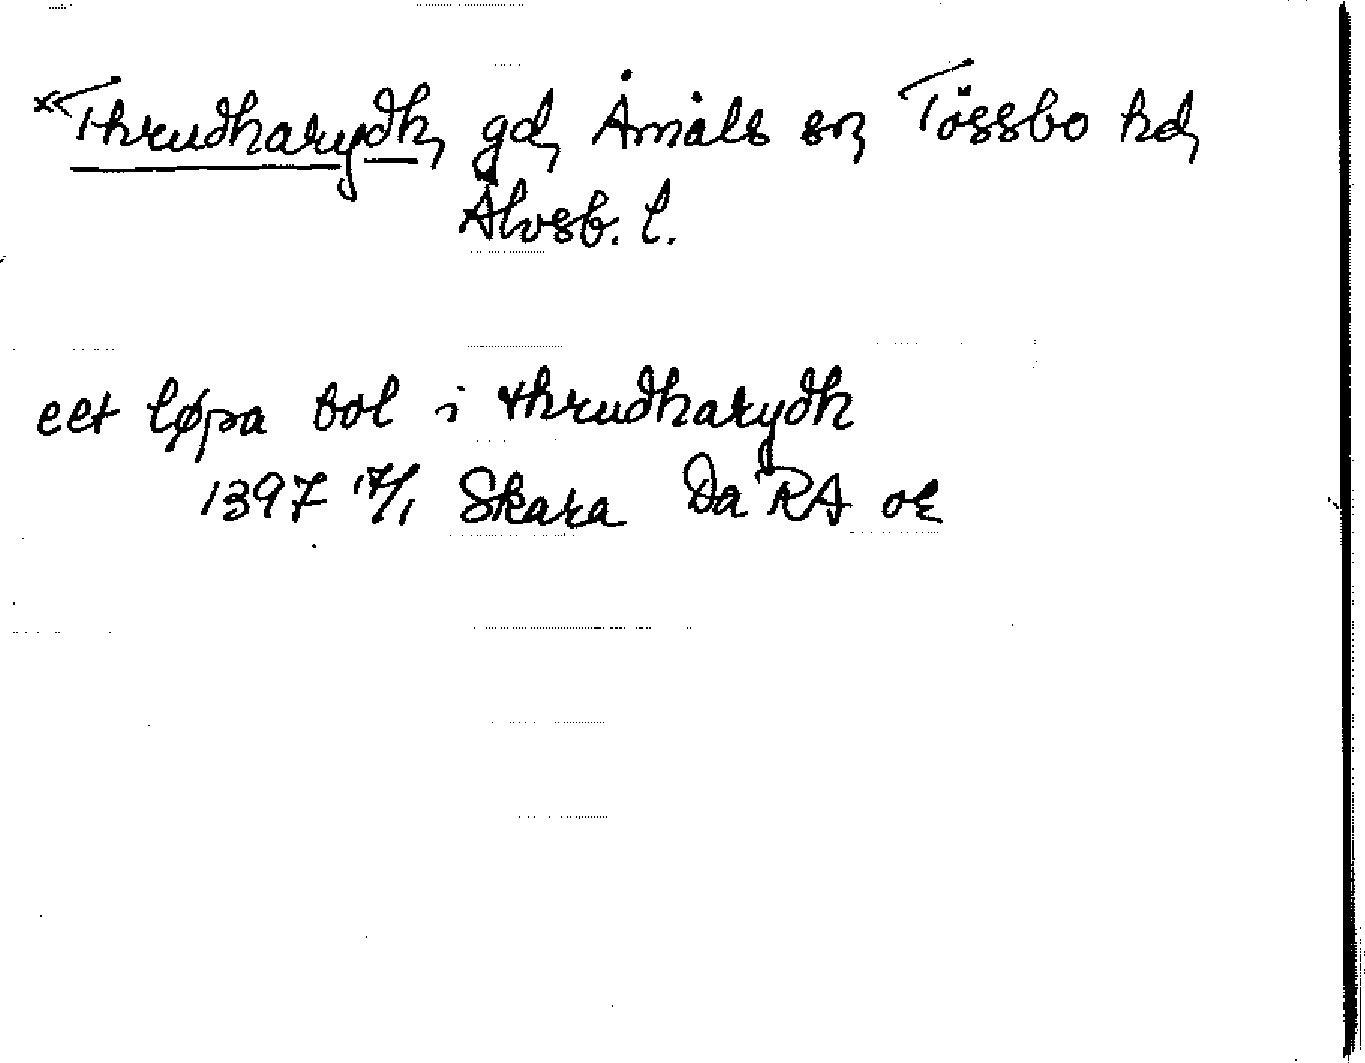 *Thrudharydh, gd, Åmåls sn, Tössbo hd,
Älvsb. l.
eet løpa bol i thrudharydh
1397 17/1 Skara Da RA or